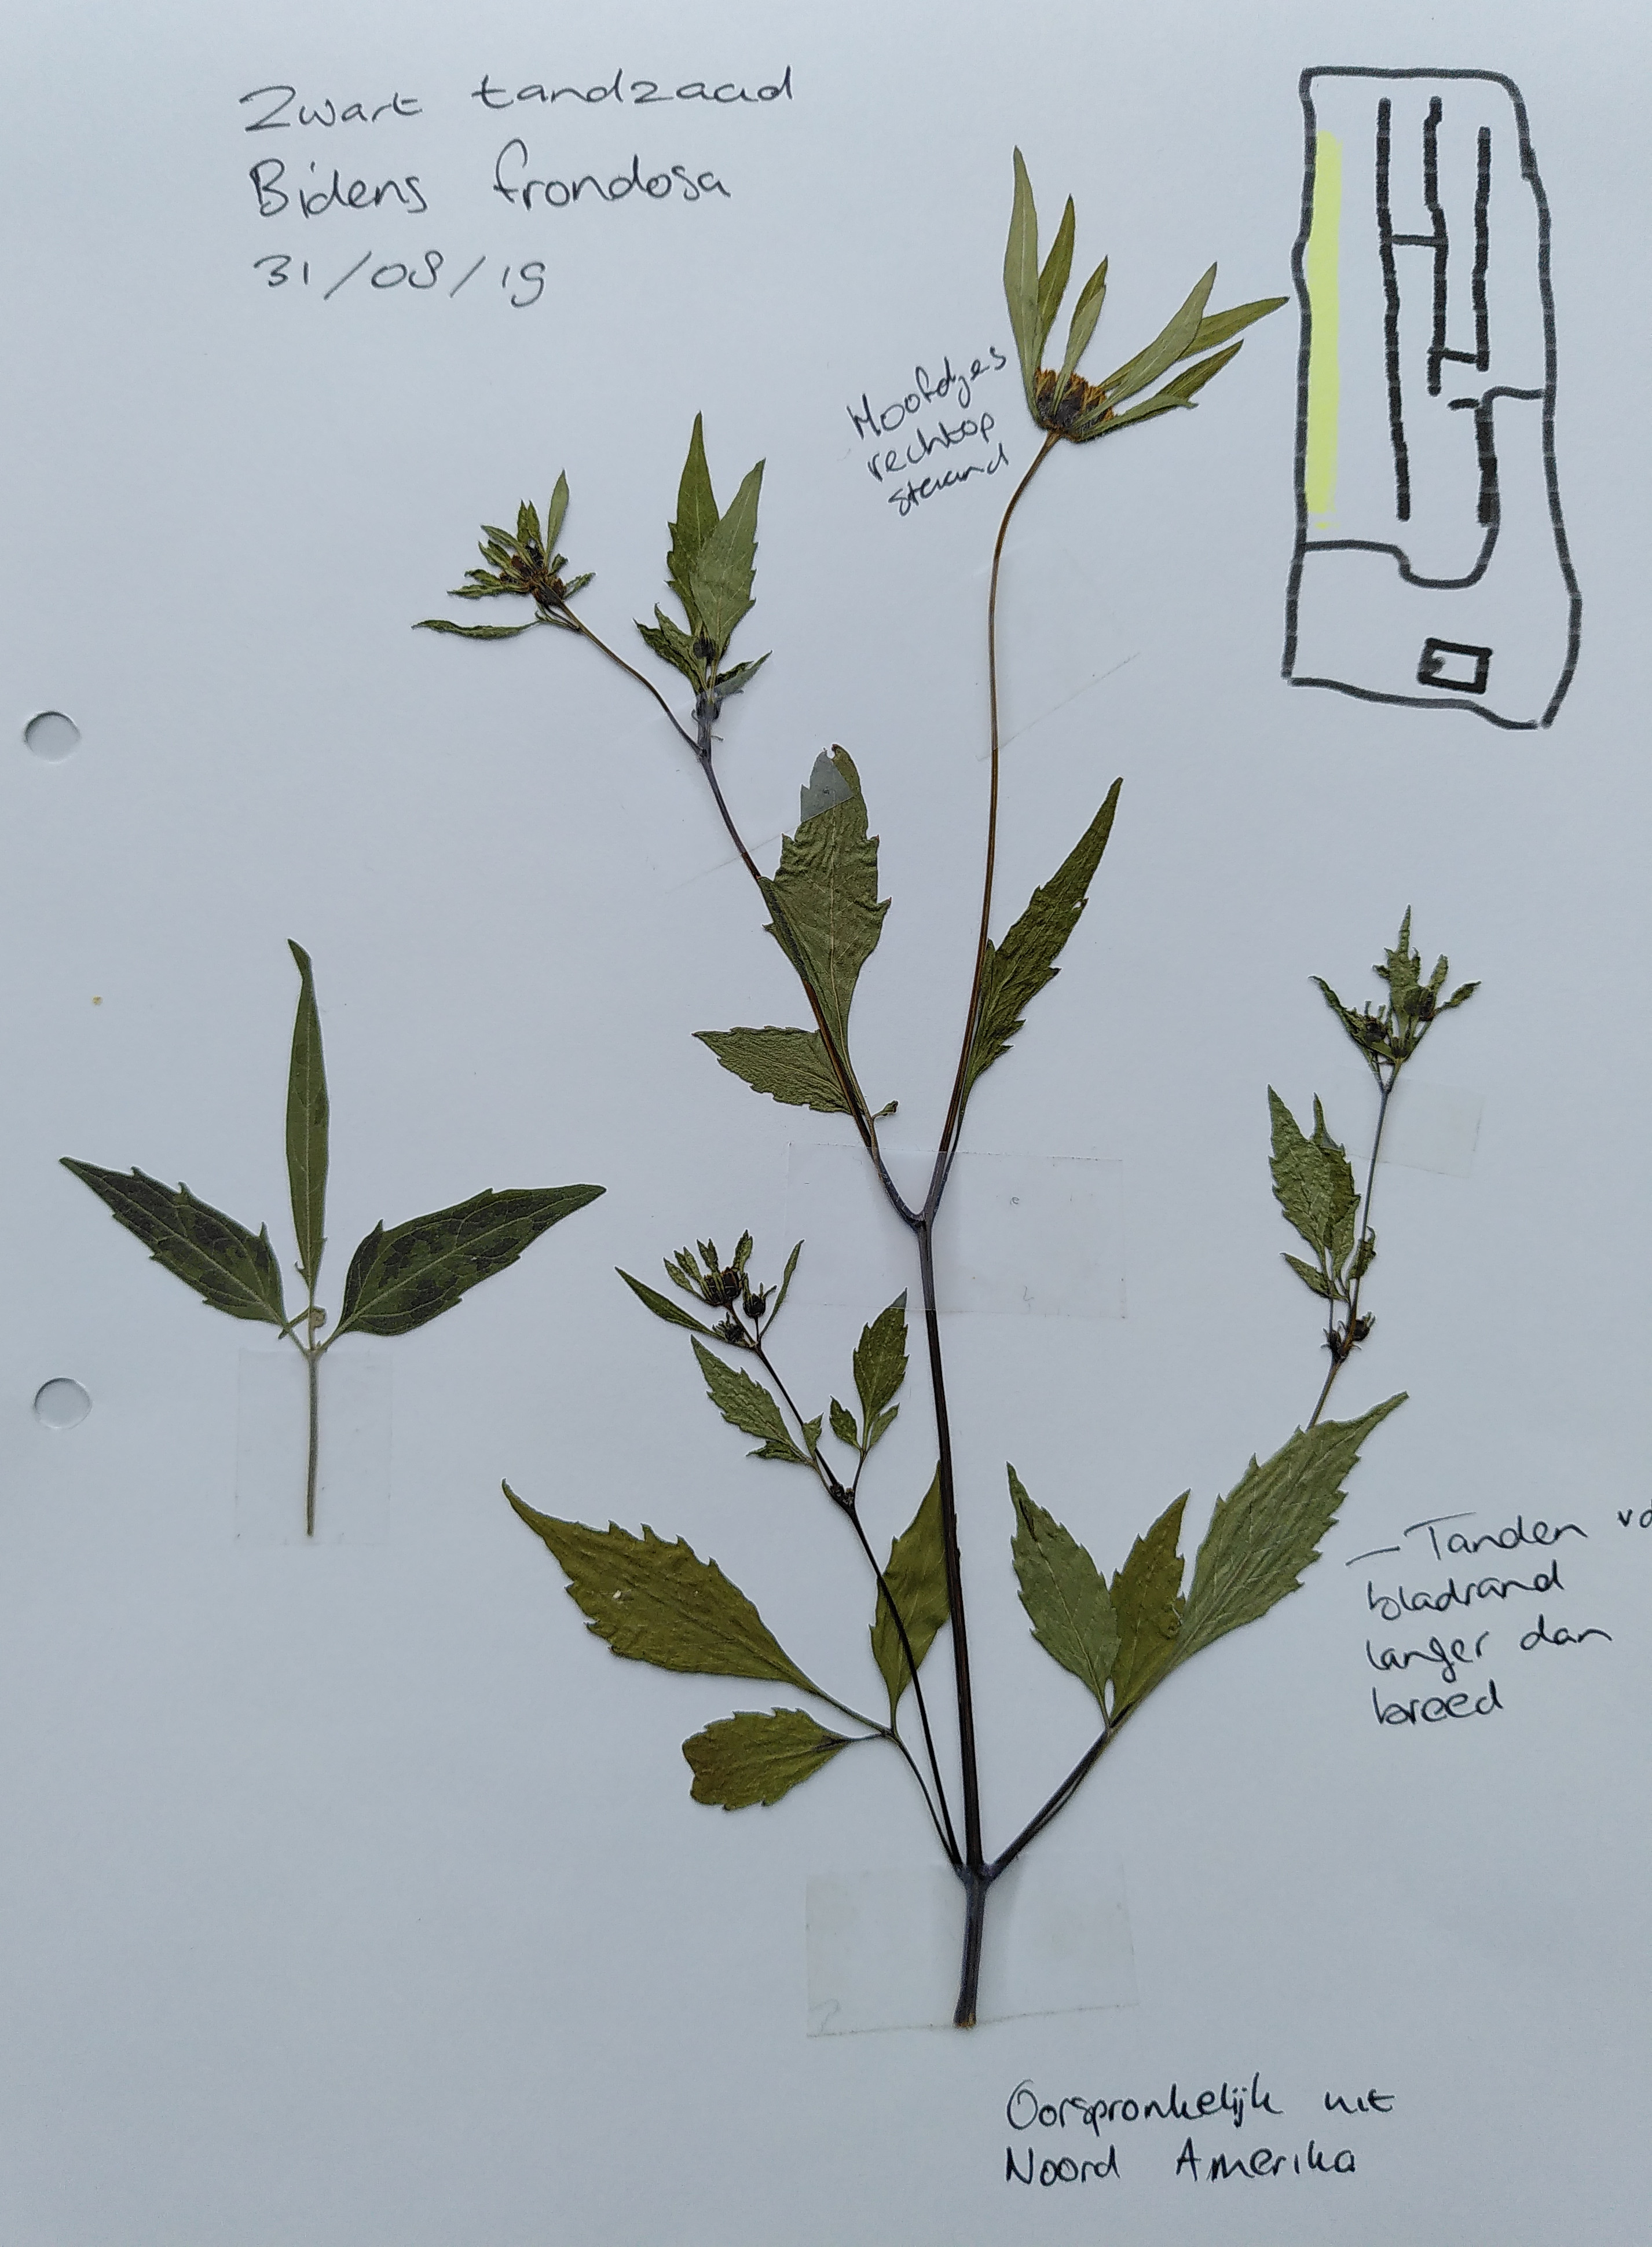 Zwart tandzaad
Bidens frondosa
31/08/19
Hoofdjes
rechtop
staand
— Tanden
bladrand
langer dan
breed
Oorspronkelijk uit
Noord Amerika